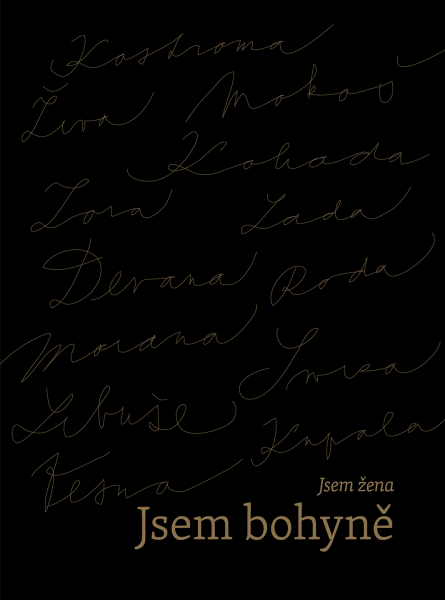 Kostroma
Živa Mokoš
Koliada
Zora Lada
Devana Roda
Morana
Libuše Smrza
Kupala
Vesna
Jsem žena
Jsem bohyně